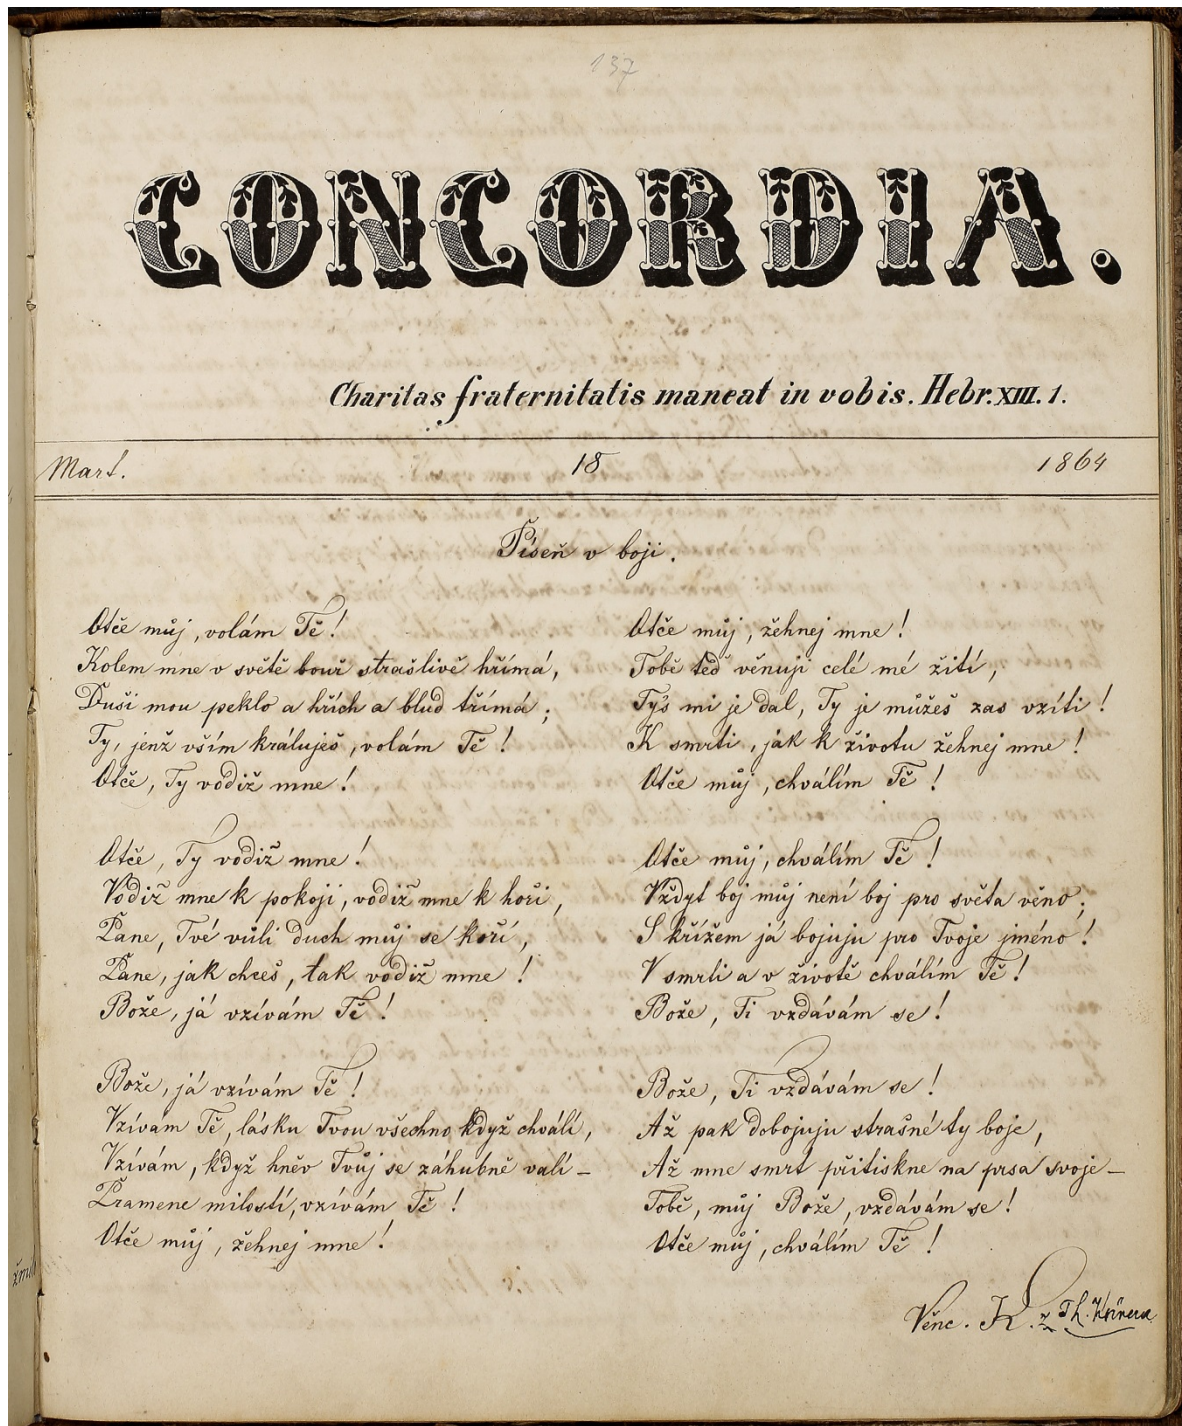 137
CONCORDIA.
Charitas fraternitatis maneat in vobis. Hebr. XIII. 1.
Mart. 18 1864
Píseň v boji.
Otče můj, volám Tě!
Kolem mne v světě bouř strašlivě hřímá,
Duši mou peklo a hřích a blud třímá;
Ty, jenž vším králuješ, volám Tě!
Otče, Ty vodiž mne!
Otče, Ty vodiž mne!
Vodiž mne k pokoji, vodiž mne k hoři,
Pane, Tvé vůli duch můj se koří,
Pane, jak chceš, tak vodiž mne!
Bože, já vzívám Tě!
Bože, já vzívám Tě!
Vzívam Tě, lásku Tvou všechno když chválí,
Vzívám, když hněv Tvůj se záhubně valí –
Pramene milostí, vzívám Tě!
Otče můj, žehnej mne!
Otče můj, žehnej mne!
Tobě teď věnuji celé mé žití,
Tys mi je dal, Ty je můžeš zas vzíti!
K smrti, jak k životu žehnej mne!
Otče můj, chválím Tě!
Otče můj, chválím Tě!
Vždyt boj můj není boj pro světa věno;
S křížem já bojuju pro Tvoje jméno!
V smrti a v životě chválím Tě!
Bože, Ti vzdávám se!
Bože, Ti vzdávám se!
Až pak dobojuju strašné ty boje,
Až mne smrt přitiskne na prsa svoje –
Tobě, můj Bože, vzdávám se!
Otče můj, chválím Tě!
Věnc. K. z Th. Körnera